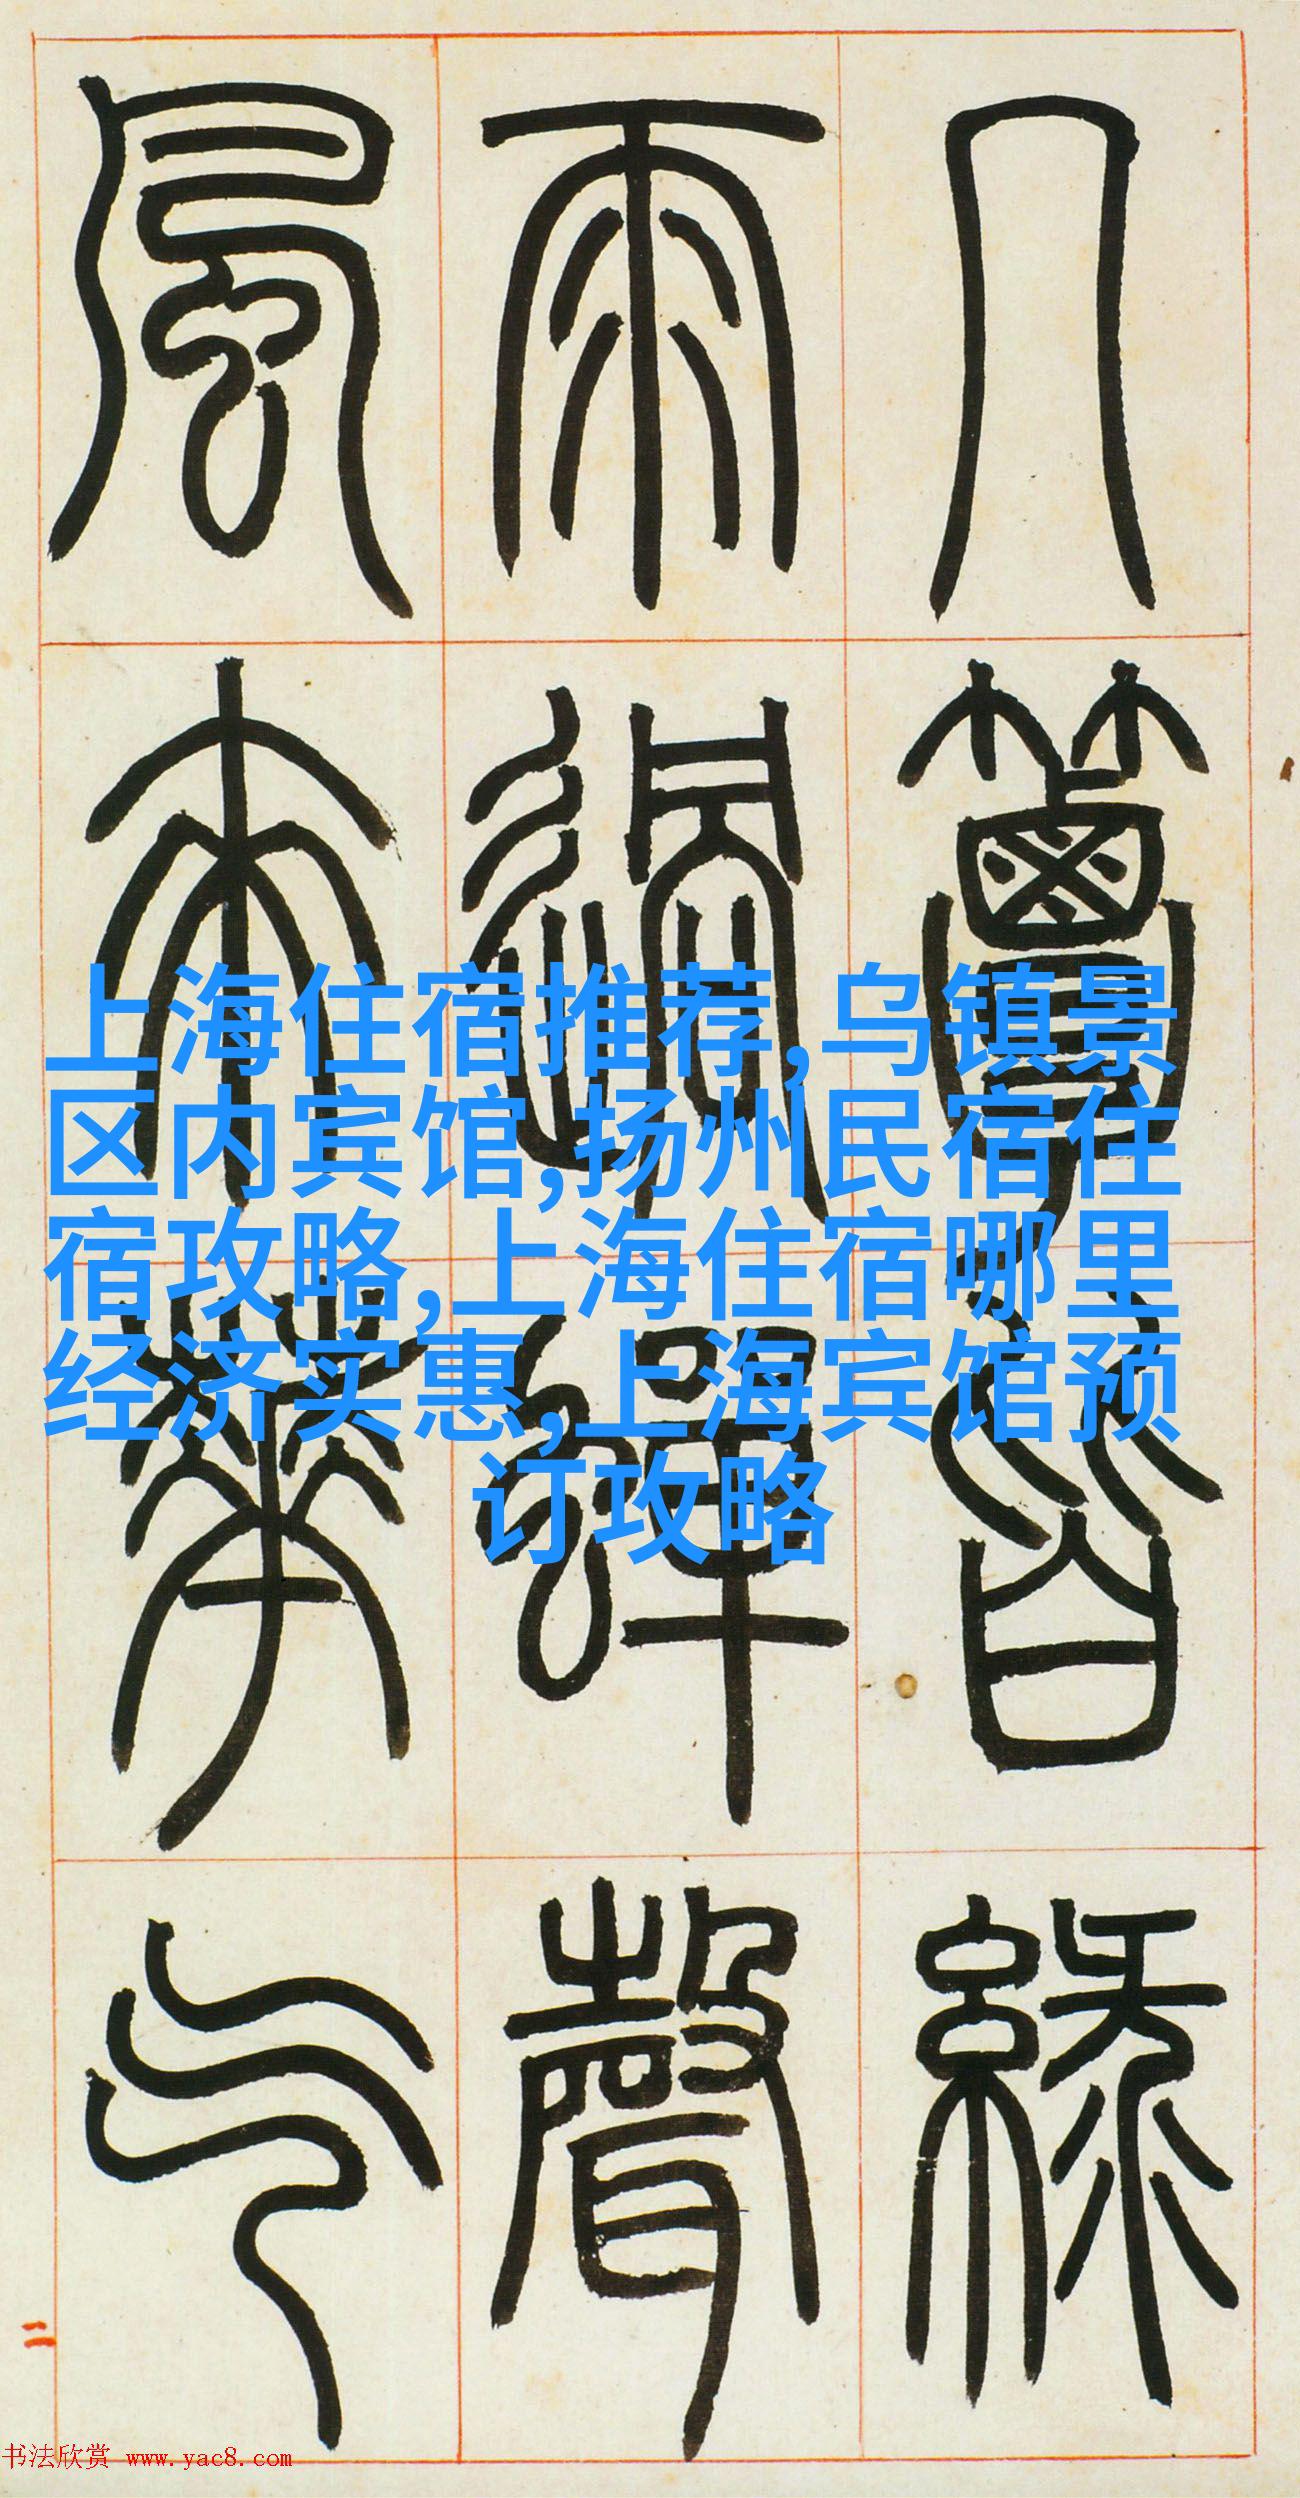 几簟皆綠
雨過蟬聲
風來華气
上海住宿推荐,乌镇景
区内宾馆,扬州民宿住
宿攻略,上海住宿哪里
经济实惠,上海宾馆预
订攻略
二
书法欣赏 www.yac8.com